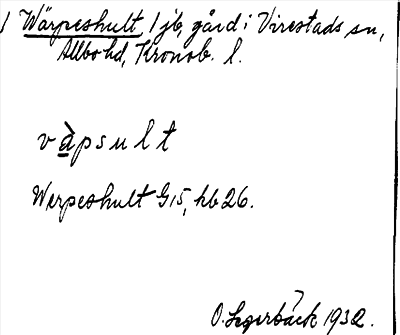 1 Wärpeshult, 1 jb, gård i Virestads sn,
Allbo hd, Kronob. l.
vàpsult
Werpeshult G15, hb 26.
O. Lagerbäck 1932.